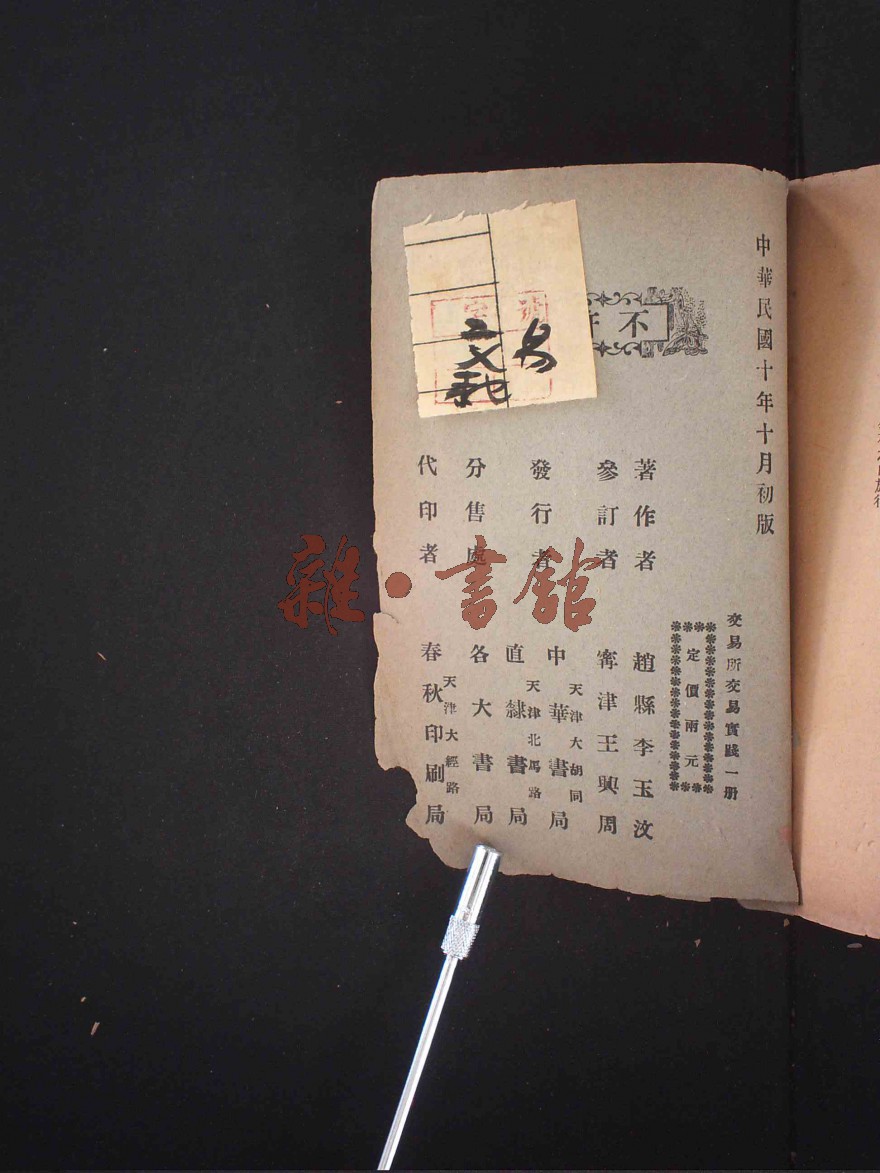 中華民國十年十月初版
交易所交易實踐一册
定價兩元
不許
著作者 趙縣李玉汶
參訂者 甯津王興周
發行者
天津大胡同
中華書局
天津北馬路
直隸書局
分售處 各大書局
代印者
天津大經路
春秋印刷局
雜·書館